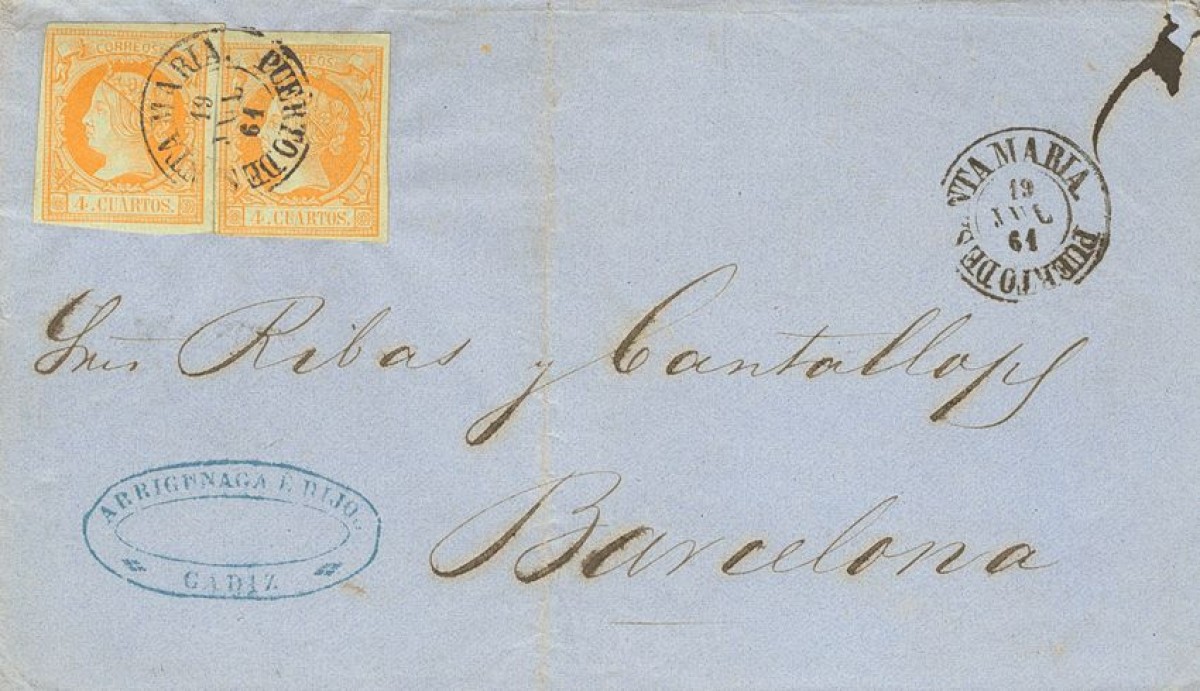 CORREOS
4. CUARTOS.
CORREOS
4. CUARTOS.
PUERTO DE SNTA MARIA.
19
JUL
61
PUERTO DE SNTA MARIA.
19
JUL
61
Sres Ribas y Cantallops
Barcelona
ARRIGUNAGA É HIJOS
CADIZ